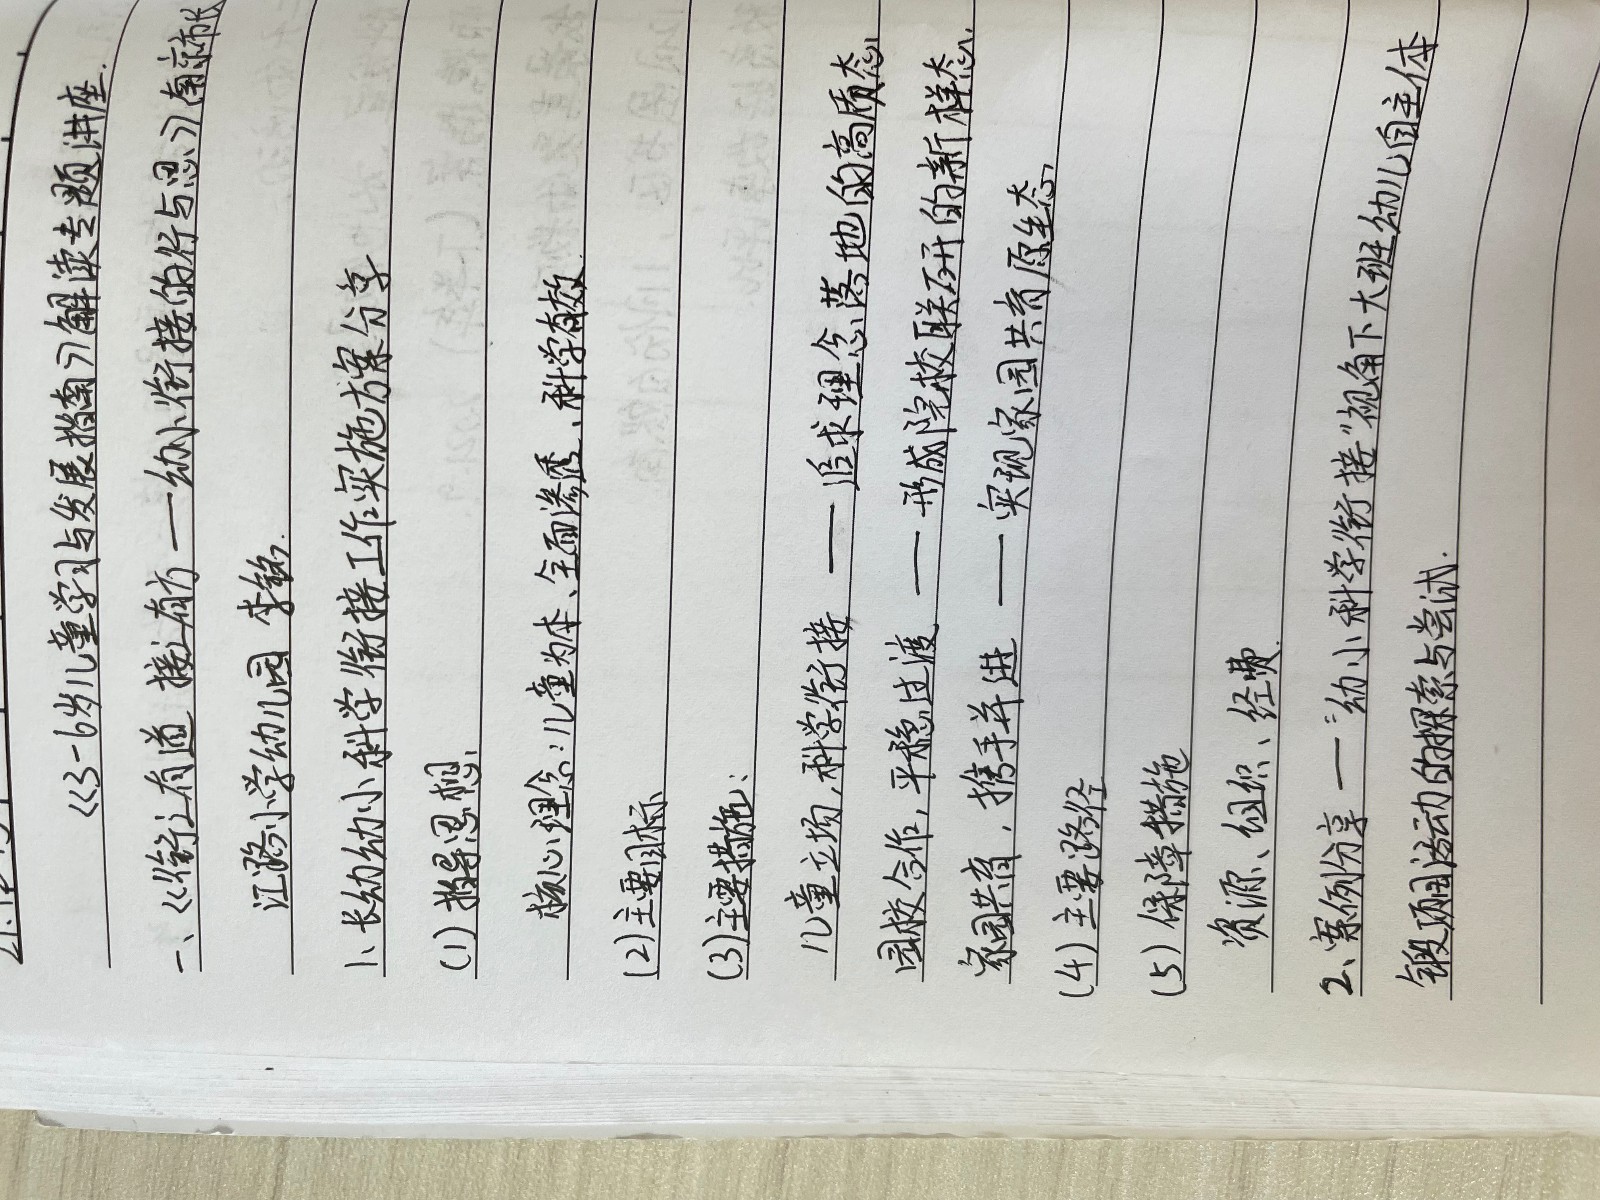 《3-6岁儿童学习与发展指南》解读专题讲座.
一、《衔之有道 接之有方 — 幼小衔接的行与思》南京市长
江路小学幼儿园 李
1、长幼幼小科学衔接工作实施方案分享
(1)指导思想.
核心理念:儿童为本、全面渗透、科学有效.
(2)主要目标
(3)主要措施:
儿童立场,科学衔接 — 追求理念落地的高质态.
园校合作,平稳过渡 — 形成院校联研的新样态.
家园共育,携手并进 — 实现家园共育原生态.
(4)主要路径
(5)保障措施
资源、组织、经费.
2、案例分享 — "幼小科学衔接"视角下大班幼儿自主体
锻项目活动的探索与尝试.